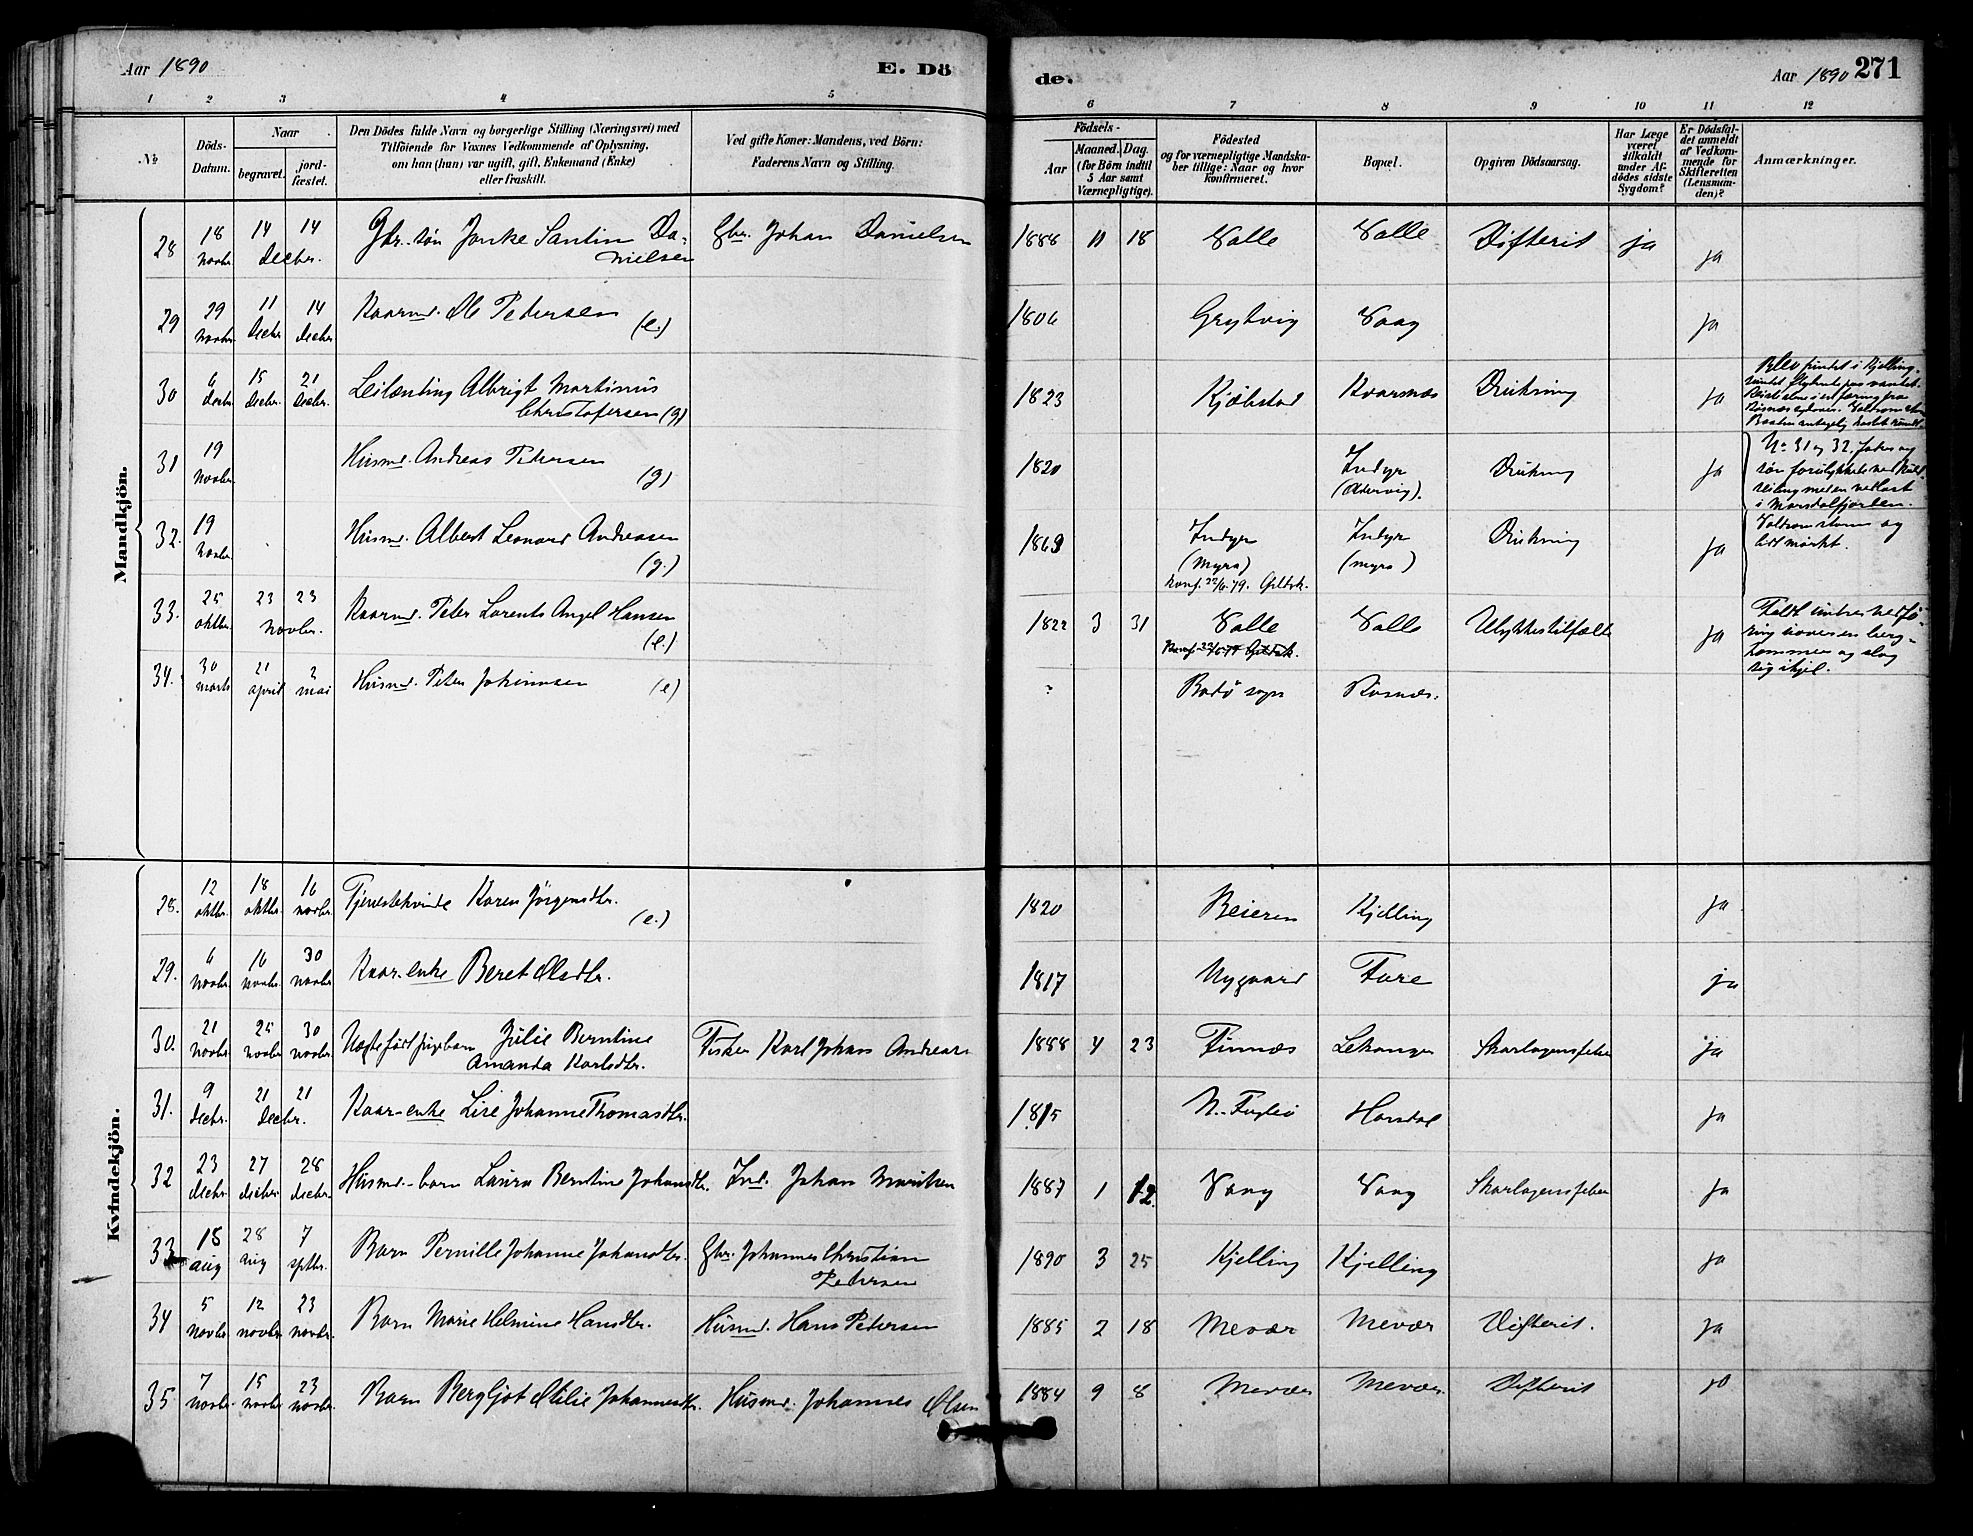 Aar 1890
E. Dö
de.
Aar 1890 271
1 2 3 4 5
6 7 8 9 10 11 12
No
Döds-
Datum.
Naar
begravet.
jord-
fæstet.
Den Dödes fulde Navn og borgerlige Stilling (Næringsvei) med
Tilföiende for Voxnes Vedkommende af Oplysning,
om han (hun) var ugift, gift, Enkemand (Enke)
eller fraskilt.
Ved gifte Koner: Mandens, ved Börn:
Faderens Navn og Stilling.
Födsels-
Aar
Maaned. Dag.
(for Börn indtil
5 Aar samt
Værnepligtige).
Födested
og for værnepligtige Mandska-
ber tillige: Naar og hvor
konfirmeret.
Bopæl.
Opgiven Dödsaarsag.
Har Læge
været
tilkaldt
under Af-
dödes sidste
Sygdom?
Er Dödsfal-
det anmeldt
af Vedkom-
mende for
Skifteretten
(Lensman-
den)?
Anmærkninger.
Mandkjön.
28 18 novbr. 14 14 decbr. Gbr. sön Jonke Santin Da-
nielsen Gbr. Johan Danielsen 1888 11 18 Valle Valle Difterit ja ja
29 29 novbr. 11 decbr. 14 decbr. Kaarmd. Ole Petersen (e.) 1806 Grytvig Vaag ja
30 6 decbr. 15 decbr. 21 decbr. Leilænding Albrigt Martinus
Christofersen (g) 1823 Kjøbstad Kvarsnæs Drukning ja
31 19 novbr. Husmd. Andreas Petersen (g) 1820 Indyr Drukning ja
No 31 og 32, fader og
sön forulykket
i Morsdalfjorden.
32. 19 novbr. Husmd. Albert Leonard Andreasen (g.) 1863 Indyr
(Myra) Indyr
(myra) Drukning ja
Voldsom storm og
lidt mørkt.
konf. 22/6 79. Gildsk.
33. 25 oktbr. 23 23 novbr. Kaarmd. Peter Lorents Angel Hansen (e.) 1822 3 31 Valle Valle Ulykkestilfælde ja
og slog
sig ihjel.
34. 30 marts 21 april 2 mai Husmd. Peter Johannsen (e) ? Bodö sogn
Kvindekjön.
28. 12 oktbr. 18 oktbr. 16 novbr. Tjenestekvinde Karen Jörgensdtr. (e.) 1820 Beieren Kjelling ja
29. 6 novbr. 16 novbr. 30 novbr. Kaar-enke Beret Olsdtr. 1817 Nygaard Fore ja
30. 21 novbr. 25 novbr. 30 novbr. Uægtefödt pigebarn Julie Berntine
Amanda Karlsdtr. Fisker Karl Johan Andreas 1888 4 23 Finnæs Lekanger Skarlagensfeber ja
31. 9 decbr. 21 21 decbr. Kaar-enke Lise Johanne Thomasdtr. 1815 N. Fuglö Horsdal ja
32 23 decbr. 27 decbr. 28 decbr. Husmd.-barn Laura Berntine Johansdtr. Ind. Johan Moritsen 1887 1 12. Vaag Vaag Skarlagensfeber ja
33 18 aug 28 aug 7 sptbr. Barn Pernille Johanne Johansdtr. Gbr. Johannes Christian
Pedersen 1890 3 25 Kjelling Kjelling ja
34 5 novbr. 12 novbr. 23 novbr. Barn Marie Helmine Hansdtr. Husmd. Hans Petersen 1885 2 18 Mevær Mevær Difterit. ja
35 7 novbr. 15 novbr. 23 novbr. Barn Bergljot Otilie Johannesdtr. Husmd. Johannes Olsen 1884 9 8 Mevær Mevær Difterit ja